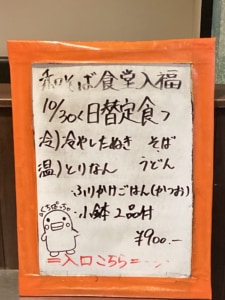 そば食堂入福
10/30く日替定食〉
冷)冷やしたぬき そば
温)とりなん うどん
ふりかけごはん(かつお)
小鉢2品付
¥900.-
=入口こちら=